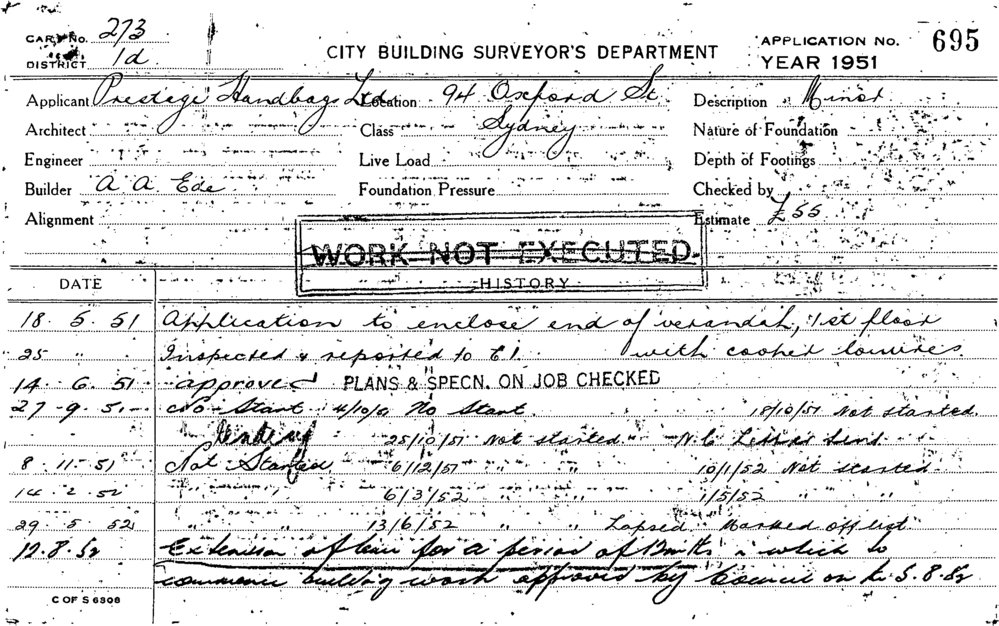 CARD No. 273
DISTRICT 1d
CITY BUILDING SURVEYOR'S DEPARTMENT
APPLICATION No. 695
YEAR 1951
Applicant Prestage Handbags Ltd. Location 94 Oxford St. Description Minor
Architect Class Sydney Nature of Foundation
Engineer Live Load Depth of Footings
Builder A A Ede Foundation Pressure Checked by
Alignment Estimate £55
WORK NOT EXECUTED
DATE HISTORY
18. 5. 51 Application to enclose end of verandah, 1st floor
25 " Inspected & reported to E1. with cooper louvres.
14. 6. 51 approved PLANS & SPECN. ON JOB CHECKED
27. 9. 51 No Start 4/10/51 No Start. 18/10/51 Not started.
25/10/51 Not started N.C. Letter Send
8. 11. 51 Not Started 6/12/51 " " 10/1/52 Not started
14. 2. 52 6/3/52 1/5/52 " "
29. 5. 52 " " 13/6/52 " " Lapsed Marked off list
12. 8. 52 Extension of time for a period of in which to
commence building work approved by Council on 5.8.52
C OF S 6308